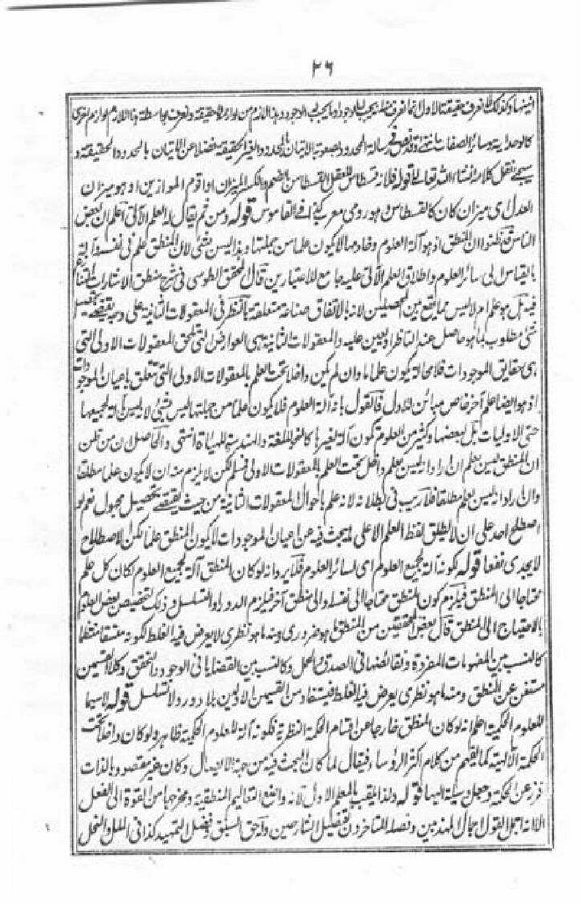 ٢٦
العدل اى ميزان كان كالقسطاس هو رومى معرب كذا فى القاموس قوله ومن ثم يقال له العلم الآلى اعلم ان بعض
الناس قد ظنوا ان المنطق اذ هو آلة العلوم وخادمها لا يكون علما من جملتها وهذا ليس بشئ لان المنطق علم فى نفسه وآلة
بالقياس الى سائر العلوم واطلاق العلم الآلى عليه جامع للاعتبارين قال المحقق الطوسى فى شرح منطق الاشارات
فيه بل هو علم ام لا ليس مما يقع بين المحصلين لانه بالاتفاق صناعة متعلقة بالنظر فى المعقولات الثانية على وجه يقتضى
شئ مطلوب مما هو حاصل عند الناظر او يعين عليه والمعقولات الثانية هى العوارض التى تلحق المعقولات الاولى التى
هى حقايق الموجودات فلا محالة يكون علما ما وان لم يكن داخلا تحت العلم بالمعقولات الاولى التى تتعلق باعيان الموجودات
اذ هو ايضا علم آخر خاص مبائن للاول فالقول بانه آلة العلوم فلا يكون علما من جملتها ليس بشئ لانه ليس آلة لجميعها
حتى الاوليات بل بعضها وكثير من العلوم تكون آلة لغيرها كالنحو للغة والهندسة للهيئة انتهى والحاصل ان من ظن
ان المنطق ليس بعلم ان اراد انه ليس بعلم داخل تحت العلم بالمعقولات الاولى فمسلم لكن لا يلزم منه ان لا يكون علما مطلقا
وان اراد انه ليس بعلم مطلقا فلا ريب فى بطلانه لانه علم باحوال المعقولات الثانية من حيث يقتضى تحصيل مجهول نعم لو
اصطلح احد على ان لا يطلق لفظ العلم الا على ما يبحث فيه عن اعيان الموجودات لا يكون المنطق علما لكن الاصطلاح
لا يجدى نفعا قوله لكونه آلة لجميع العلوم اى لسائر العلوم فلا يرد انه لو كان المنطق آلة لجميع العلوم لكان كل علم
محتاجا الى المنطق فيلزم كون المنطق محتاجا الى نفسه او الى منطق آخر فيلزم الدور او التسلسل وذلك تخصيص بعض العلوم
بالاحتياج الى المنطق قال بعض المحققين من المنطق ما هو ضرورى ومنه ما هو نظرى لا يعرض فيه الغلط لكونه متسقا منتظما
كالنسب بين المفهومات المفردة ونقائضها فى الصدق والحمل وكالنسب بين القضايا فى الوجود والتحقق وكلا القسمين
مستغن عن المنطق ومنه ما هو نظرى يعرض فيه الغلط فيستفاد من القسمين الاولين بلا دور ولا تسلسل قوله لا سيما
للعلوم الحكمية اعلم انه لو كان المنطق خارجا عن اقسام الحكمة النظرية فكونه آلة للعلوم الحكمية ظاهر ولو كان داخلا تحت
الحكمة الآلهية كما يفهم من كلام اكثر الرؤساء فيقال لما كان البحث فيه من جهة الايصال وكان غير مقصود بالذات
فرز عن الحكمة وجعل وسيلة اليها قوله ولذا يلقب بالمعلم الاول لانه واضع التعاليم المنطقية ومخرجها من القوة الى الفعل
الا انه اجمل القول اجمال الممهدين وفصله المتاخرون تفصيل الشارحين وله حق السبق وفضل التمهيد كذا فى الملل والنحل